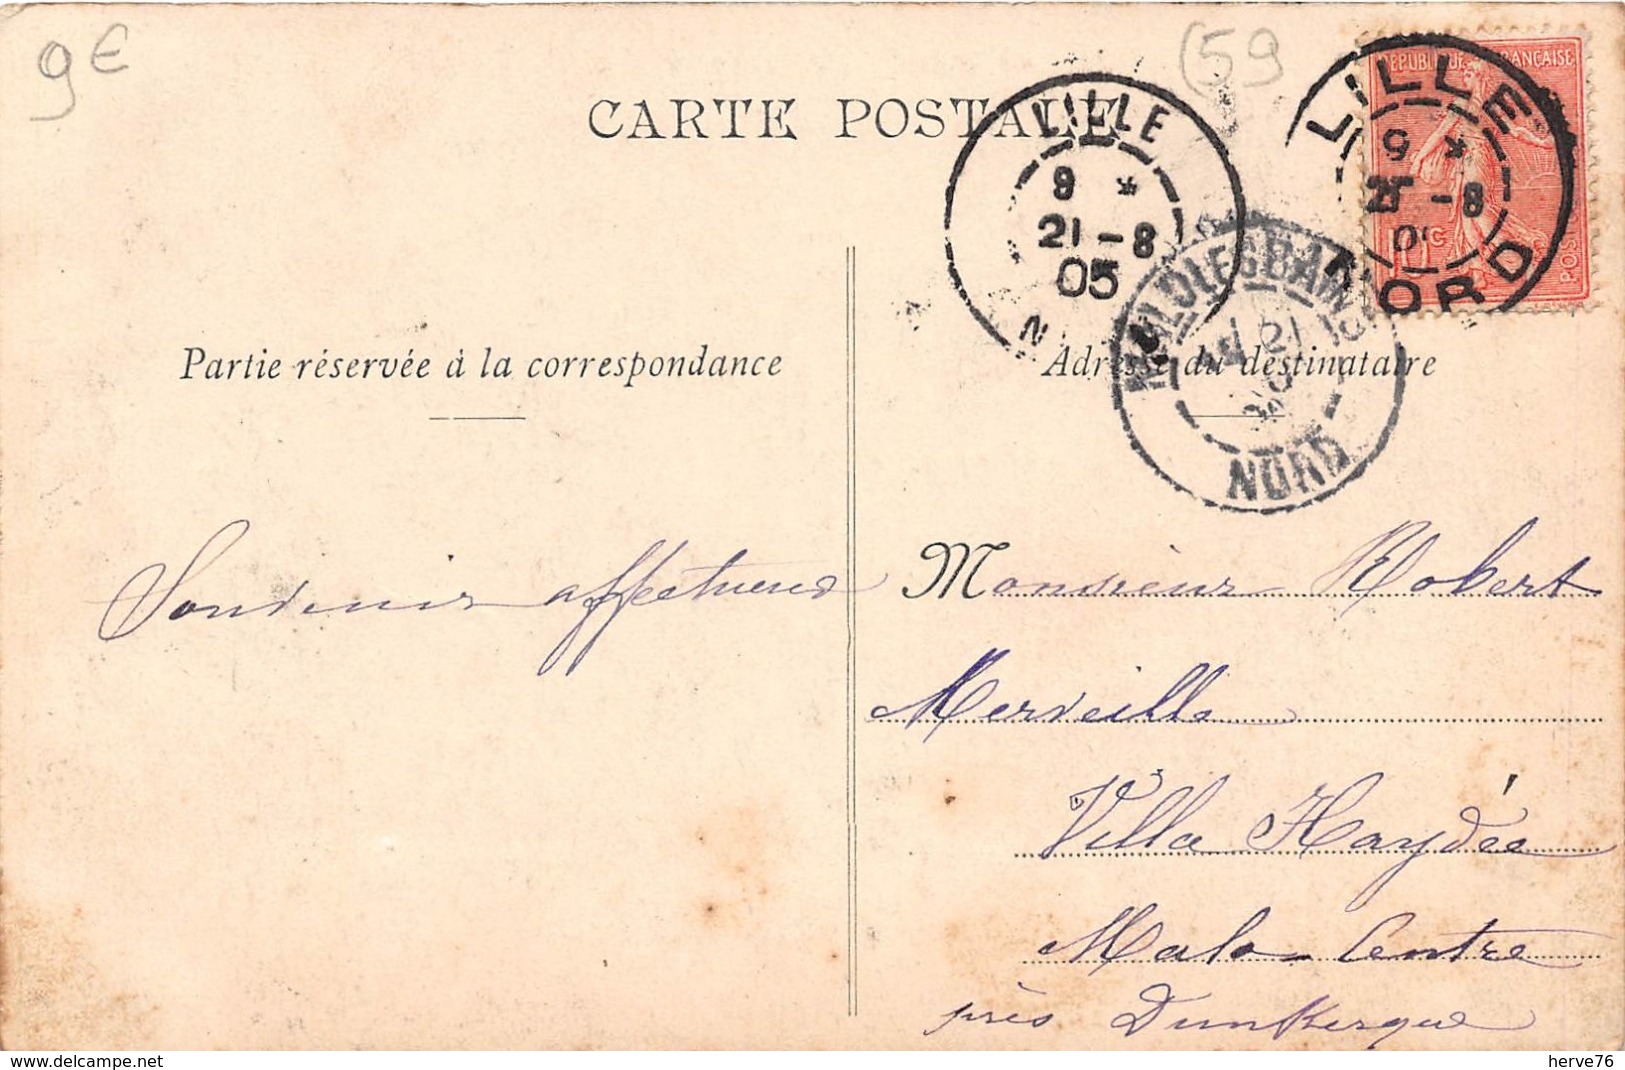 9€
(59
CARTE POSTALE
REPUBLIQUE FRANÇAISE
LILLE
9 *
21 - 8
05
LILLE
NORD
MALO-LES-BAINS
NORD
Partie réservée à la correspondance
Adresse du destinataire
Souvenir affectueux
Monsieur Robert
Merveille
Villa Haydée
Malo-Centre
près Dunkerque
delcampe.net
herve76